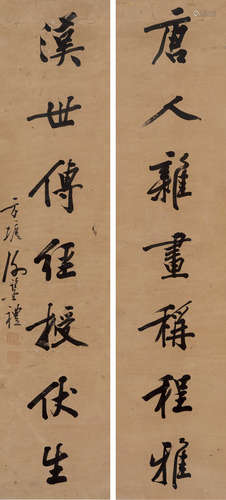 唐人雜畫稱程雅
漢世傳經授伏生
禮